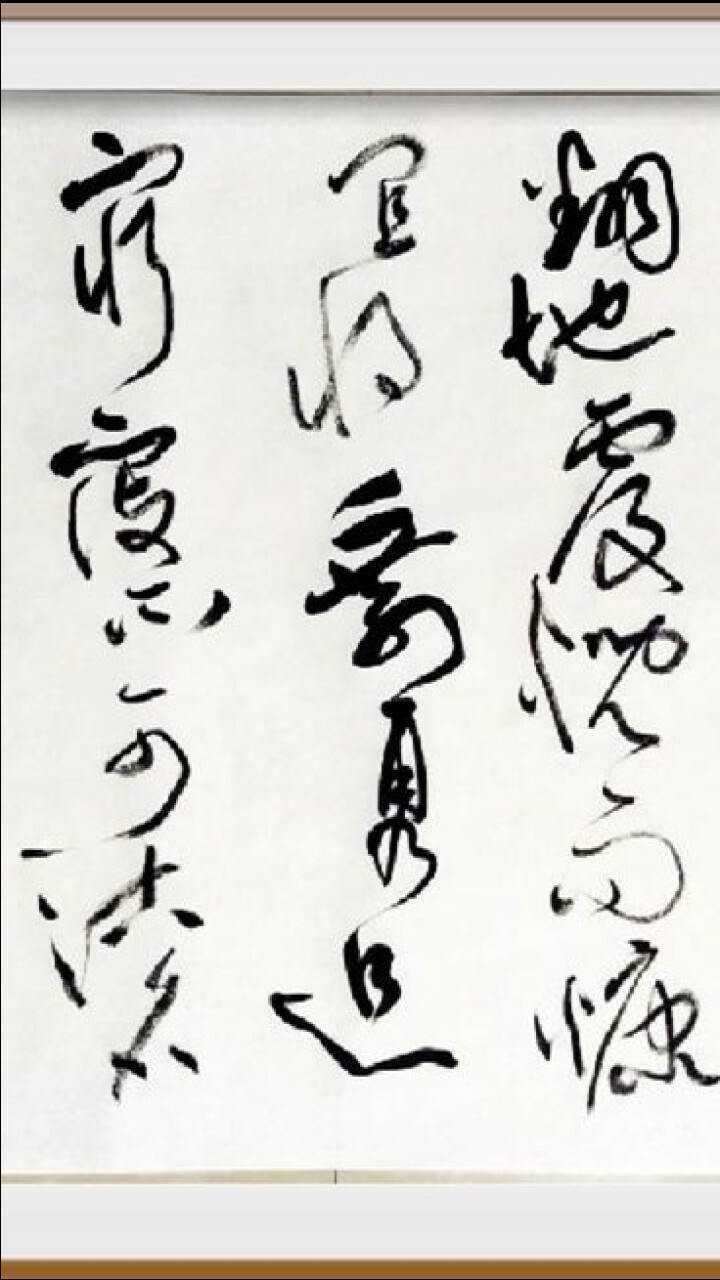 翻地覆慨而慷
宜将剩勇追
穷寇不可沽名